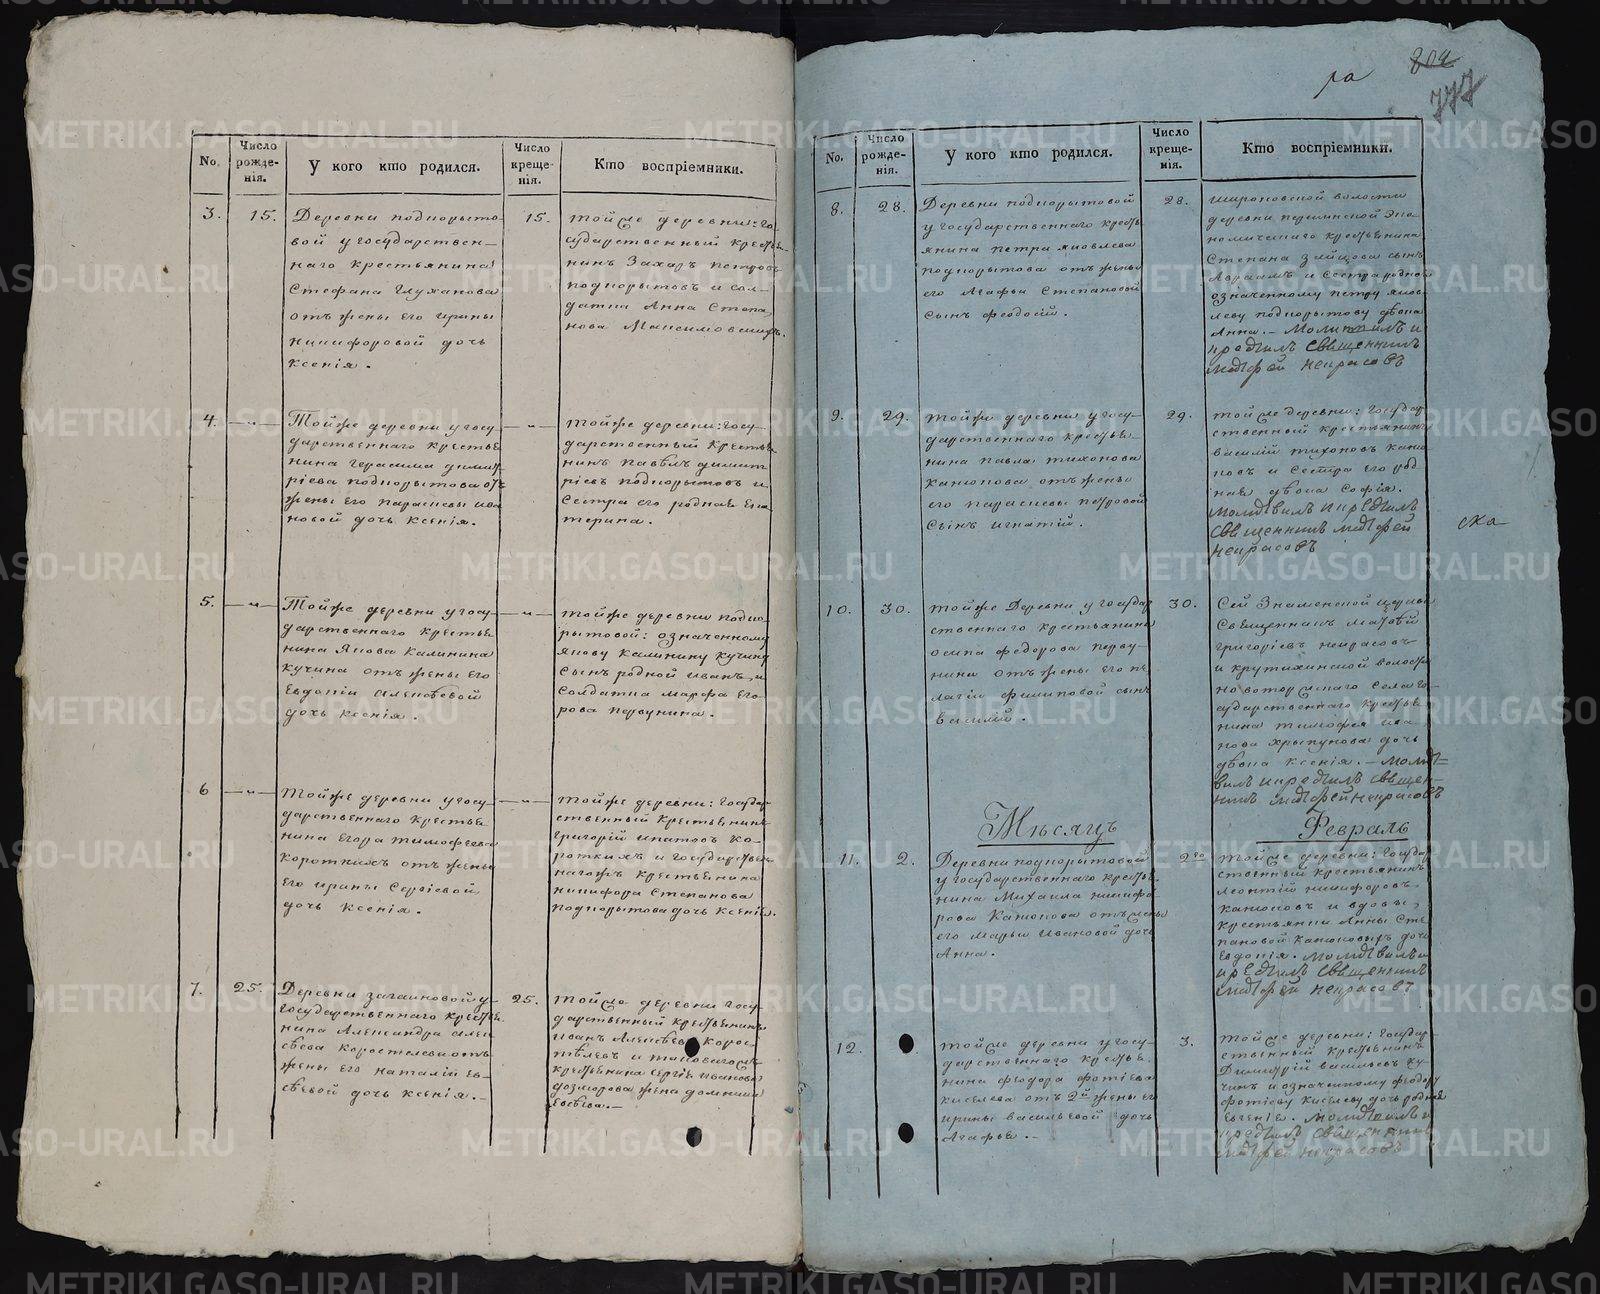 804
ра
777
No.
Число рожде-нія.
У кого кто родился.
Число креще-нія.
Кто воспріемники.
3.
15.
Деревни подкорыто-
вой у государствен-
наго крестьянина
Стефана Глуханова
отъ жены его Ирины
Никифоровой дочь
Ксенія.
15.
Тойже деревни: го-
сударственный кресть-
нинъ Захаръ Петровъ
подкорытовъ и сол-
датка Анна Степа-
нова
4.
— „ —
Тойже деревни у госу-
дарственнаго крестья-
нина Герасима Димит-
ріева подкорытова отъ
жены его Параскевы Ива-
новой дочь Ксенія.
— „ —
Тойже деревни: госу-
дарственный крестья-
нинъ Павелъ Димит-
ріевъ подкорытовъ и
сестра его родная Ека-
терина.
5.
— „ —
Тойже деревни у госу-
дарственнаго крестья-
нина Якова Калинина
Кучина отъ жены его
Евдокіи Алексеевой
дочь Ксенія.
— „ —
Тойже деревни подко-
рытовой: означенному
Якову Калинину Кучину
сынъ родной Иванъ и
солдатка Марфа Его-
рова Первунина.
6
— „ —
Тойже деревни у госу-
дарственнаго крестья-
нина Егора Тимофеева
Короткихъ отъ жены
его Ирины Сергіевой
дочь Ксенія.
— „ —
Тойже деревни: государ-
ственный крестьянинъ
Григорій Ипатовъ Ко-
роткихъ и государствен-
нагожъ крестьянина
Никифора Степанова
подкорытова дочь Ксенія.
7.
25.
Деревни у
государственнаго крестья-
нина Александра Алек-
сѣева Коростелева отъ
жены его Наталіи Ев-
сѣевой дочь Ксенія.—
25.
Тойже деревни госу-
дарственный крестьянинъ
Иванъ Алексѣевъ Корос-
телевъ и таковагожъ
крестьянина Сергія Иванова
жена Домникія
Евсѣева.—
No.
Число рожде-нія.
У кого кто родился.
Число креще-нія.
Кто воспріемники.
8.
28.
Деревни подкорытовой
у государственнаго кресть-
янина Петра Яковлева
подкорытова отъ жены
его Агафьи Степановой
сынъ Феодосій.
28.
волости
деревни эко-
номическаго крестьянина
Степана Зайцова сынъ
Авраамъ и сестра родная
означенному Петру Яков-
леву подкорытову двока
Анна.— Молитвилъ и
крестилъ священникъ
Матфей Некрасовъ
9.
29.
Тойже деревни у госу-
дарственнаго крестья-
нина Павла Тихонова
Канюкова отъ жены
его Параскевы Петровой
сынъ Игнатій.
29.
Тойже деревни: государ-
ственный крестьянинъ
Василій Тихоновъ Каню-
ковъ и сестра его род-
ная двока Софія.
Молитвилъ и крестилъ
священникъ Матфей
Некрасовъ
ска
10.
30.
Тойже деревни у государ-
ственнаго крестьянина
Осипа Федорова Перву-
нина отъ жены его Пе-
лагіи Филиповой сынъ
Василій.
30.
Сей Знаменской церкви
священникъ Матвѣй
Григоріевъ Некрасовъ
и Крутихинской волости
села го-
сударственнаго крестья-
нина Тимофея Ива-
нова Хрыпунова дочь
двока Ксенія.— Молит-
вилъ и крестилъ священ-
никъ Матфей Некрасовъ
Мѣсяцъ
Февраль
11.
2.
Деревни подкорытовой
у государственнаго крестья-
нина Михаила Никифо-
рова Канюкова отъ жены
его Марьи Ивановой дочь
Анна.
2го
Тойже деревни: государ-
ственный крестьянинъ
Леонтій Никифоровъ
Канюковъ и вдовы,
крестьянки Анны Сте-
пановой Канюковыхъ дочь
Евдокія. Молитвилъ и
крестилъ священникъ
Матфей Некрасовъ
12.
Тойже деревни у госу-
дарственнаго крестья-
нина Феодора Фотіева
Киселева отъ 2й жены его
Ирины Васильевой дочь
Агафья.—
3.
Тойже деревни: государ-
ственный крестьянинъ
Димитрій Васильевъ Ку-
чинъ и означенному Феодору
Фотіеву Киселеву дочь родная
Евгенія. Молитвилъ и
крестилъ священникъ
Матфей Некрасовъ